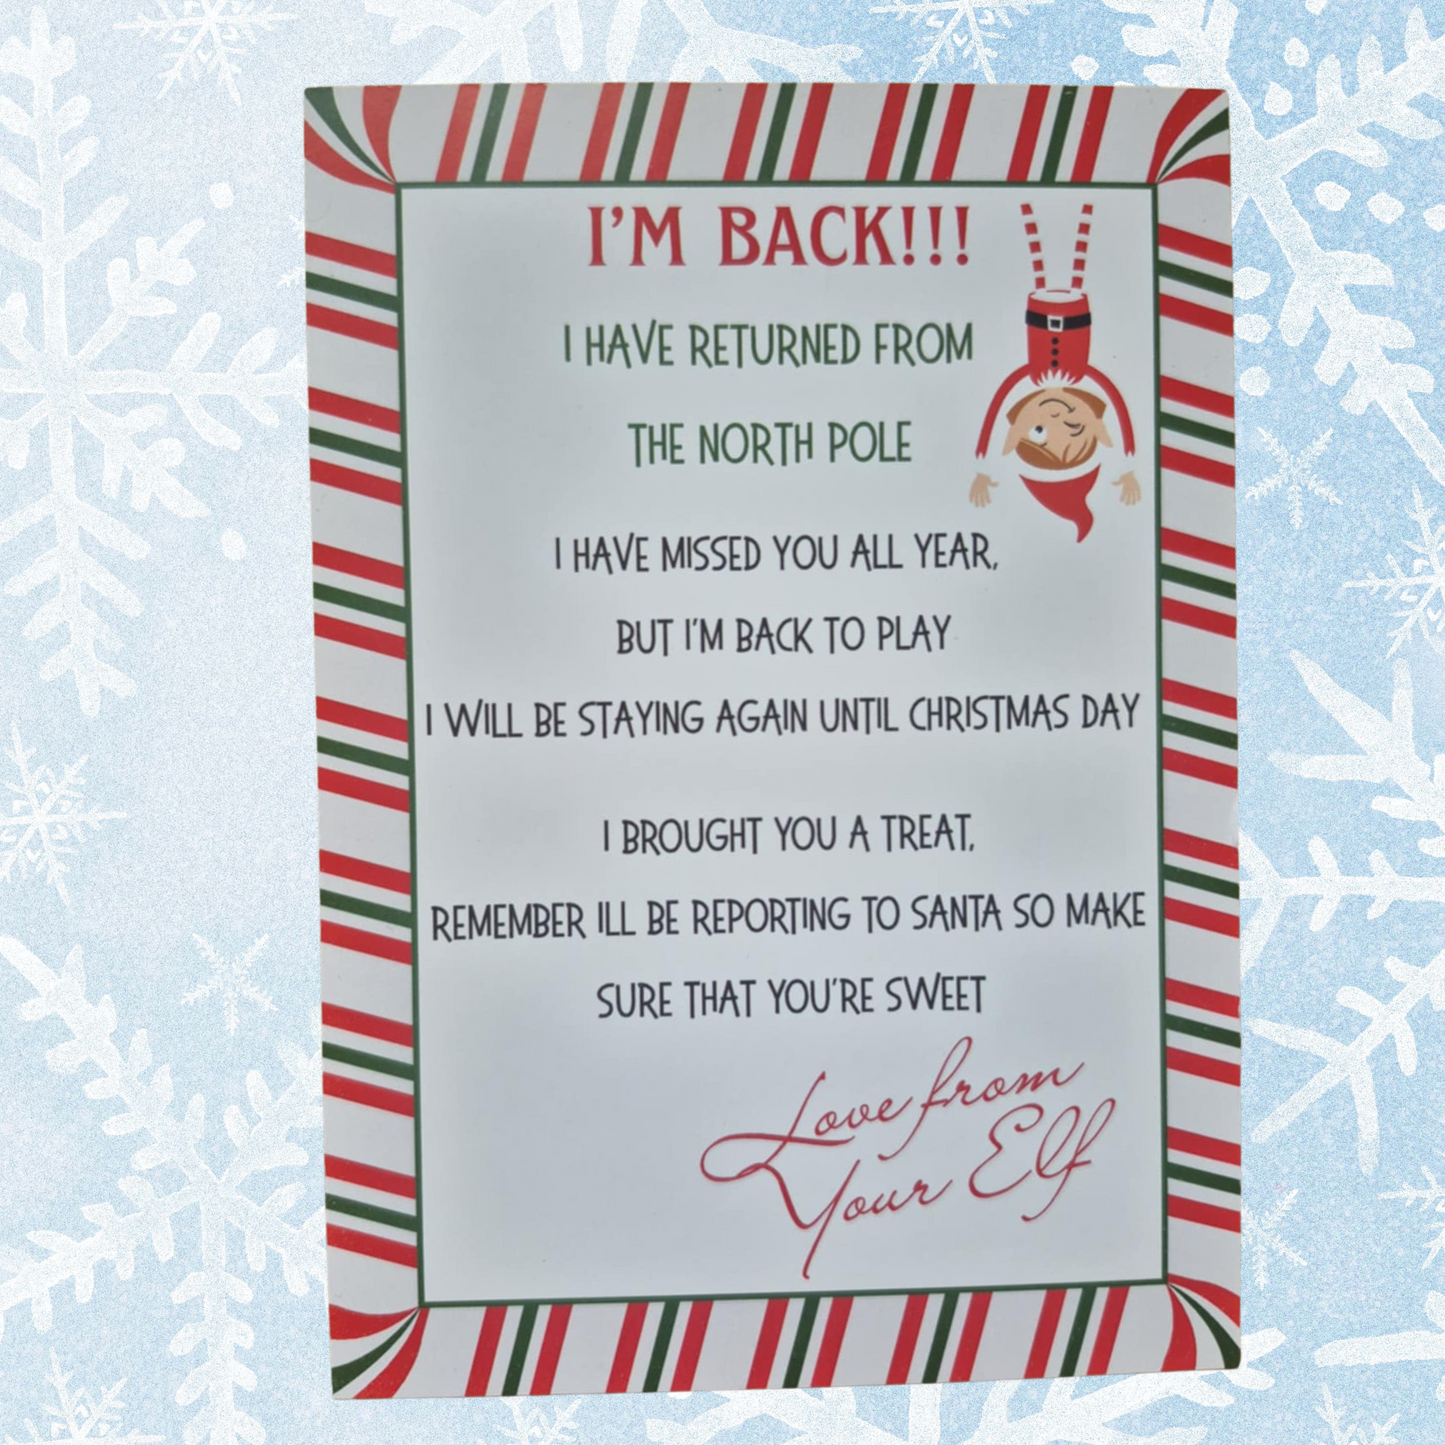 I'M BACK!!!
I HAVE RETURNED FROM
THE NORTH POLE
I HAVE MISSED YOU ALL YEAR,
BUT I'M BACK TO PLAY
I WILL BE STAYING AGAIN UNTIL CHRISTMAS DAY
I BROUGHT YOU A TREAT,
REMEMBER ILL BE REPORTING TO SANTA SO MAKE
SURE THAT YOU'RE SWEET
Love from
Your Elf